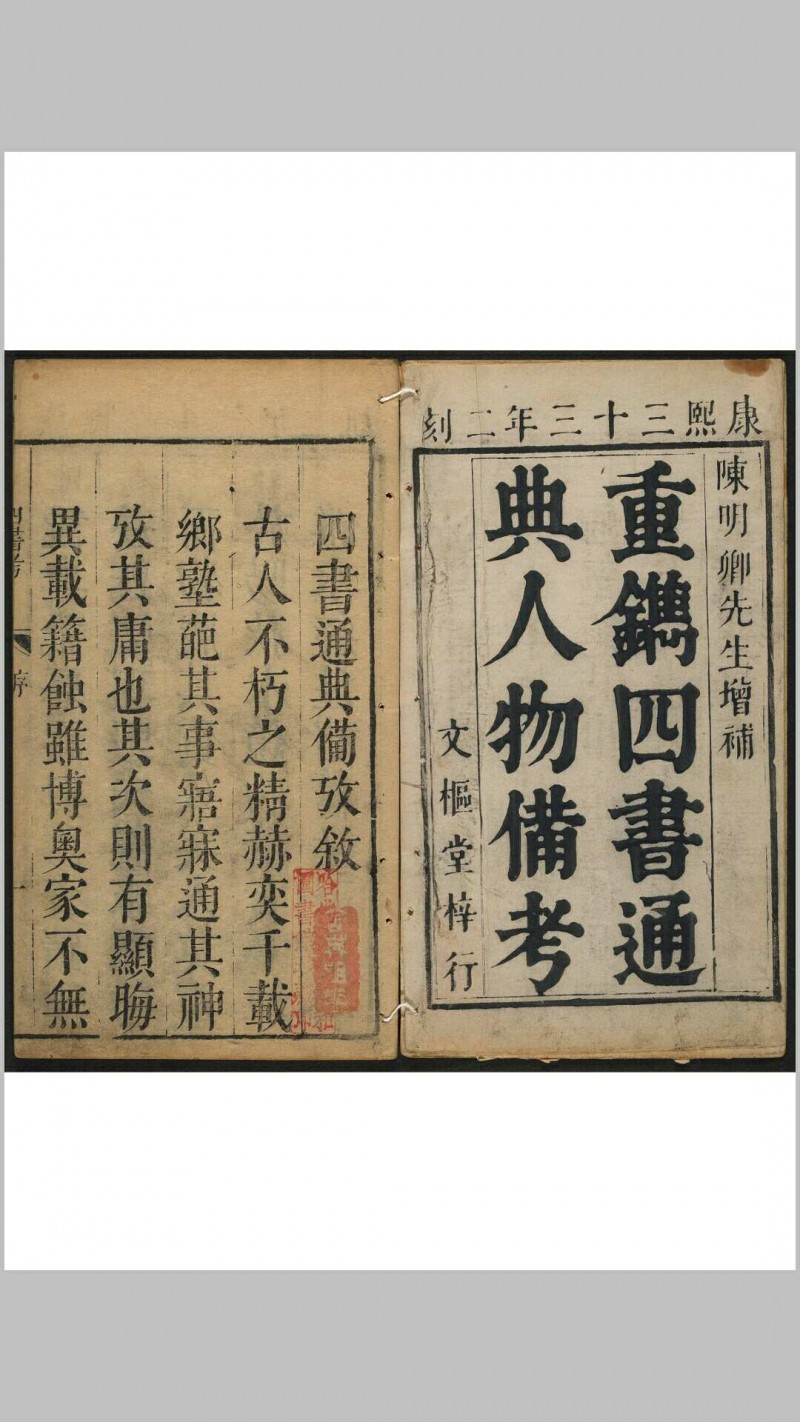 康熙三十三年二刻
陳明卿先生增補
重鐫四書通
典人物備考
文樞堂梓行
四書通典備攷敘
古人不朽之精赫奕千載
鄉塾葩其事寤寐通其神
攷其庸也其次則有顯晦
異載籍蝕雖博奧家不無
四書考
序
一
圖書